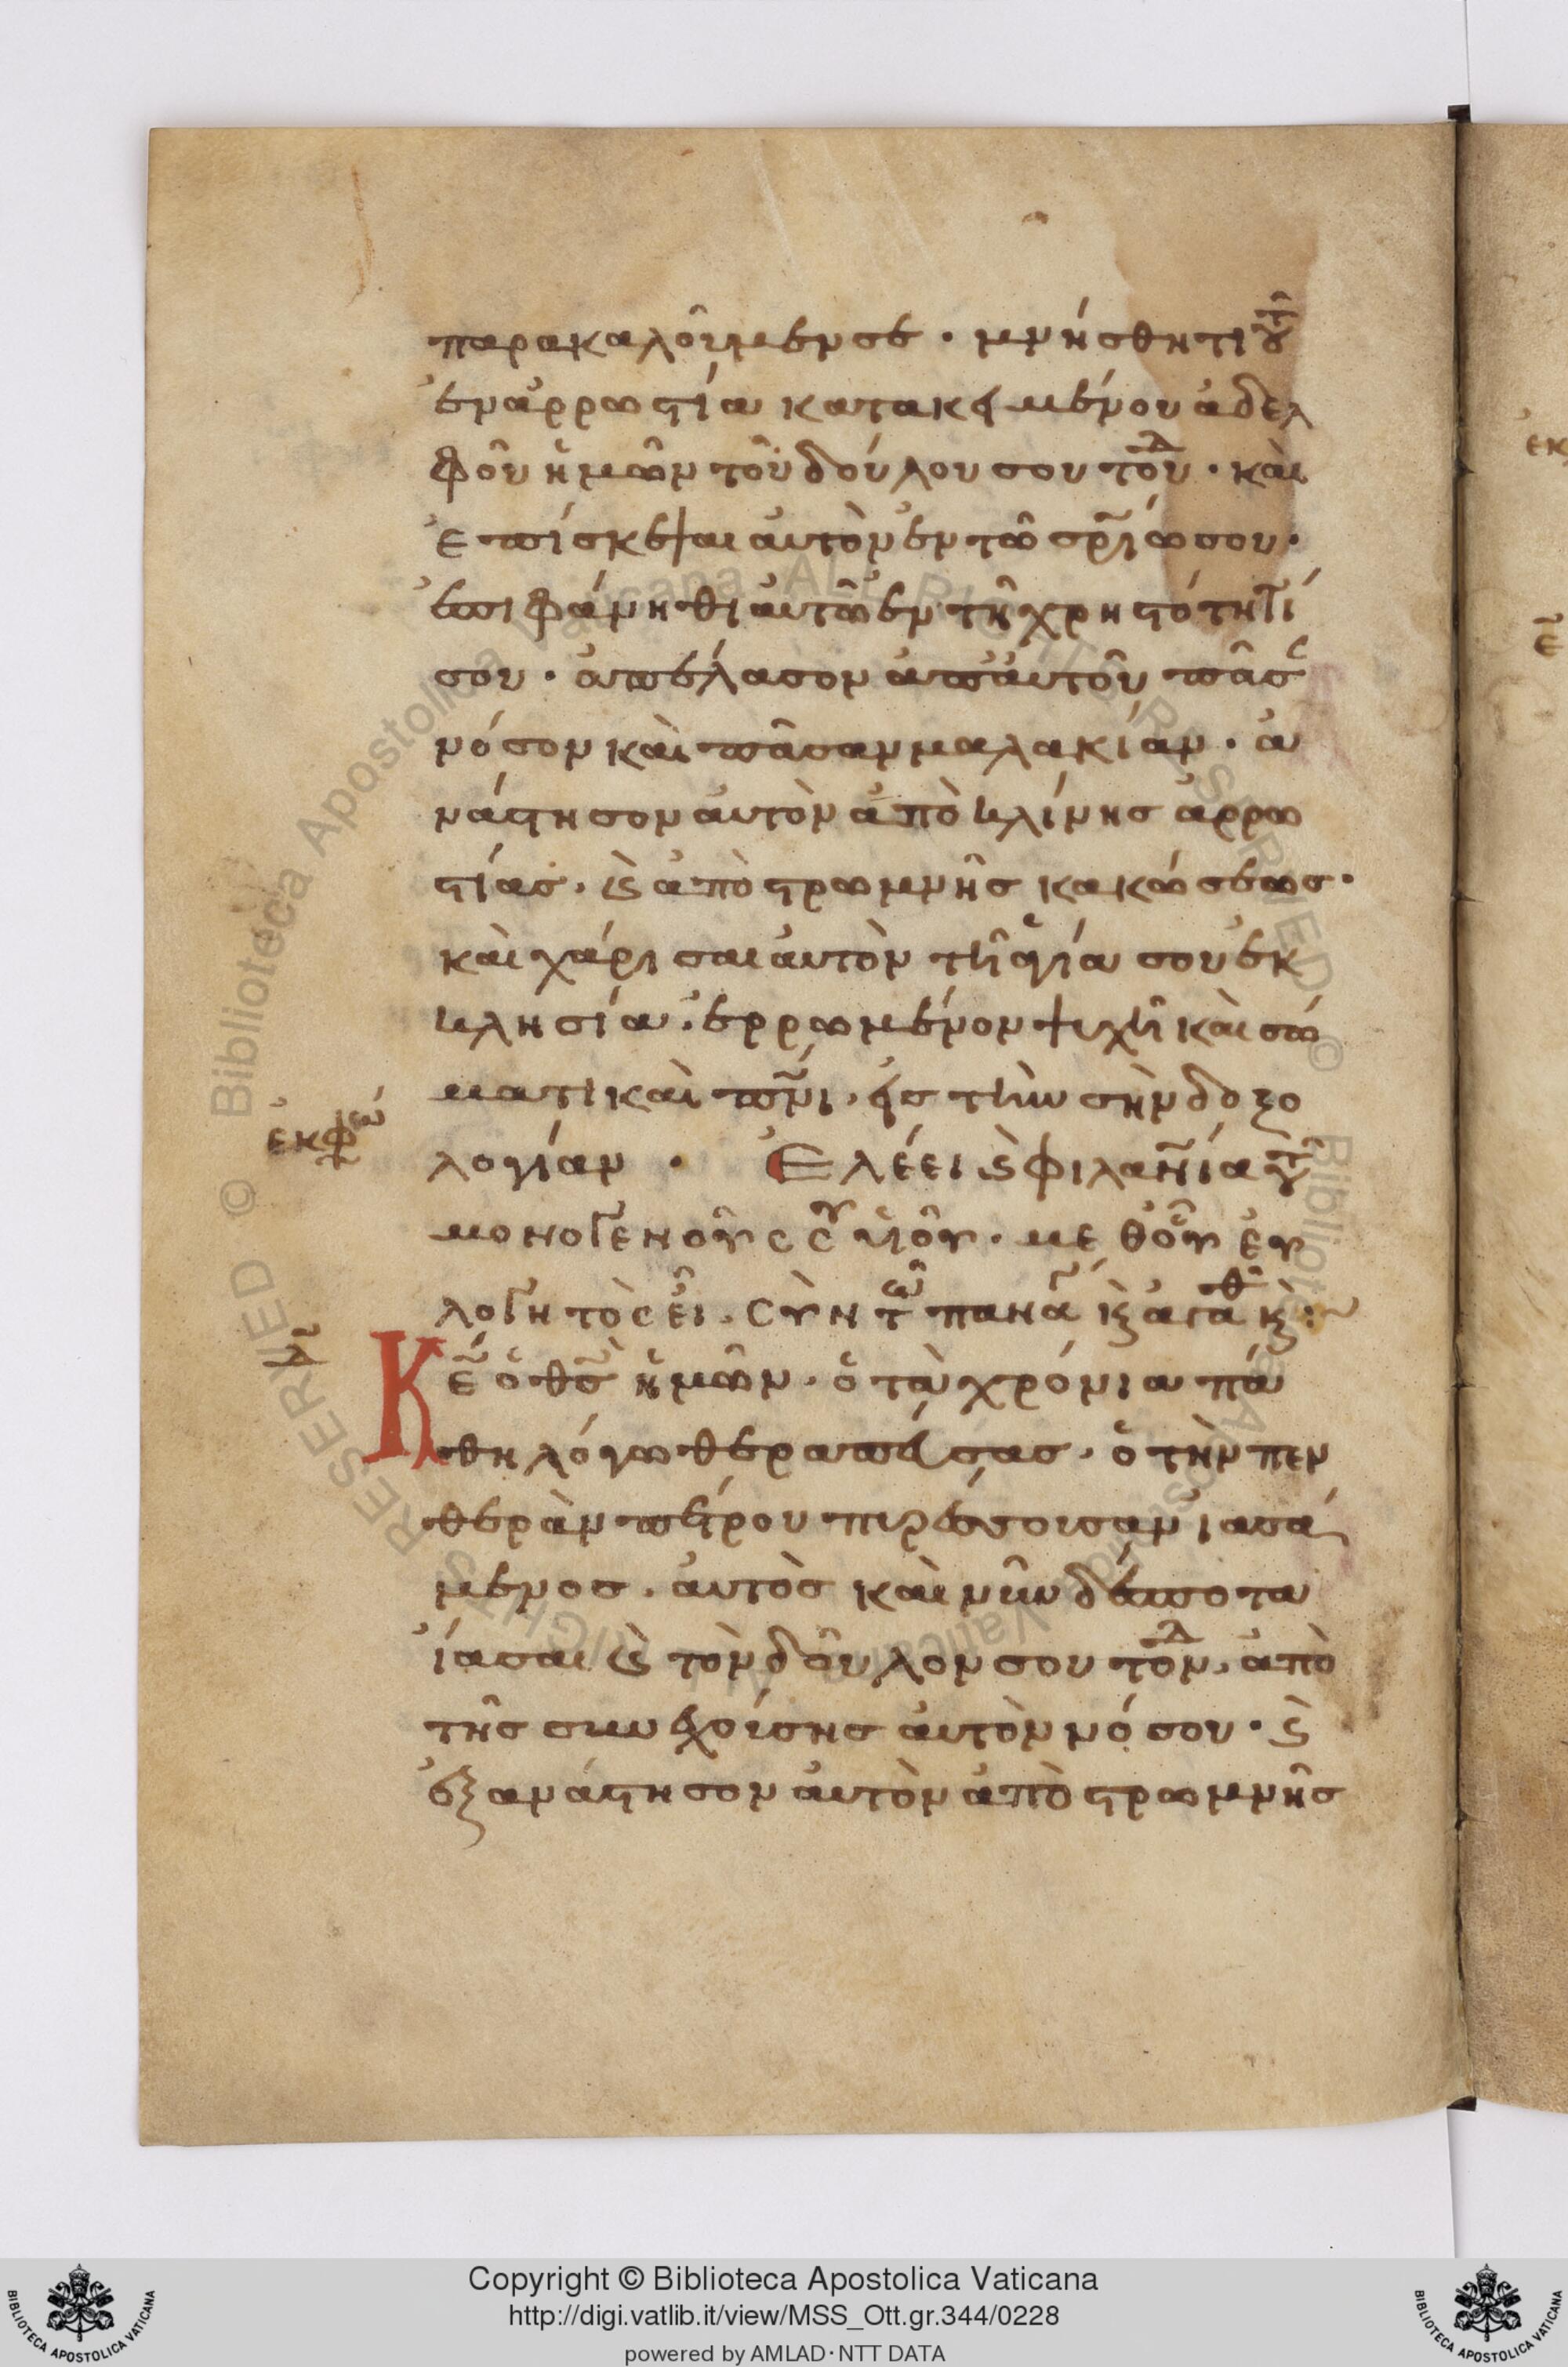 παρακαλοῦμεν σε · μνήσθητι τοῦ
ἐν ἀρρωστία κατακειμένου ἀδελ
φοῦ ἡμῶν τοῦ δούλου σου τοῦ δ · καὶ
ἐπίσκεψαι αὐτὸν ἐν τῶ σρίω σου ·
ἐπιφάνηθι αὐτῶ ἐν τῆ χρηστότητί
σου · ἀπέλασον ἀπ' αὐτοῦ πᾶσ
νόσον καὶ πᾶσαν μαλακίαν · ἀ
νάστησον αὐτὸν ἀπὸ κλίνης ἀρρω
στίας · ϗ ἀπὸ στρωμνῆς κακώσεως ·
καὶ χάρισαι αὐτὸν τῆ ἁγία σου ἐκ
κλησία · ἐρρωμένον ψυχῆ καὶ σώ
ματι καὶ πνι · εἰς τὴν σὴν δοξο
λογίαν · Ἐλέει ϗ φιλανία τοῦ
μονογενοῦς σου υἱοῦ · μεθ' οὗ εὐ
λογητὸς εἶ · σὺν τῶ παναγ ϗ ἀγαθ ϗ :~
ἐκφω
Κε ὁ θς ἡμῶν · ὁ τὰ χρόνια πά
θη λόγω θεραπεύσας · ὁ τὴν πεν
θερὰν πέτρου πυρέσσουσαν ἰασά
μενος · αὐτὸς καὶ νῦν δέσποτα
ἴασαι ϗ τὸν δοῦλον σου τὸν δ · ἀπὸ
τῆς συνεχούσης αὐτὸν νόσου · ϗ
ἐξανάστησον αὐτὸν ἀπὸ στρωμνῆς
Copyright © Biblioteca Apostolica Vaticana
http://digi.vatlib.it/view/MSS_Ott.gr.344/0228
powered by AMLAD·NTT DATA